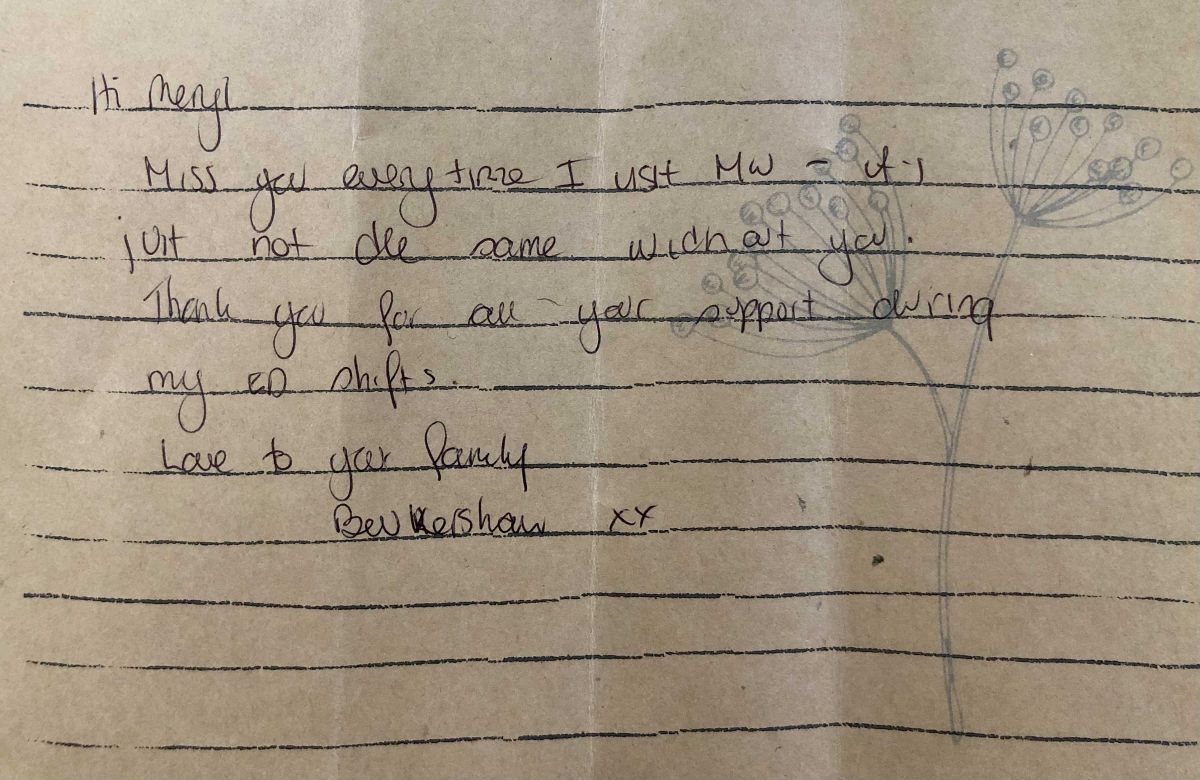 Hi Meryl
Miss you everytime I visit MW - it's
just not the same without you.
Thank you for all your support during
my ED shifts.
Love to your family
Bev Kershaw xx